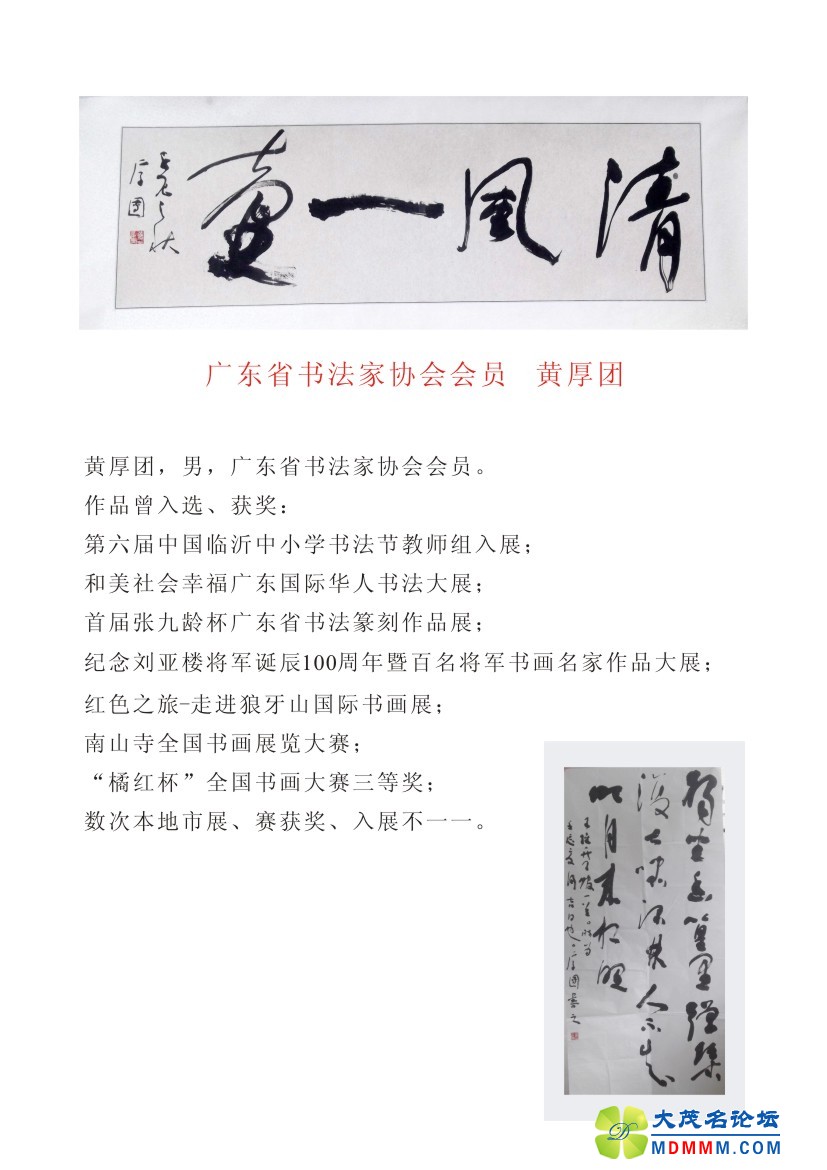 清风一壶
壬辰之秋
厚团
广东省书法家协会会员 黄厚团
黄厚团，男，广东省书法家协会会员。
作品曾入选、获奖：
第六届中国临沂中小学书法节教师组入展；
和美社会幸福广东国际华人书法大展；
首届张九龄杯广东省书法篆刻作品展；
纪念刘亚楼将军诞辰100周年暨百名将军书画名家作品大展；
红色之旅-走进狼牙山国际书画展；
南山寺全国书画展览大赛；
“橘红杯”全国书画大赛三等奖；
数次本地市展、赛获奖、入展不一一。
独坐幽篁里弹琴
复长啸深林人不知
明月来相照
大茂名论坛
MDMMM.COM